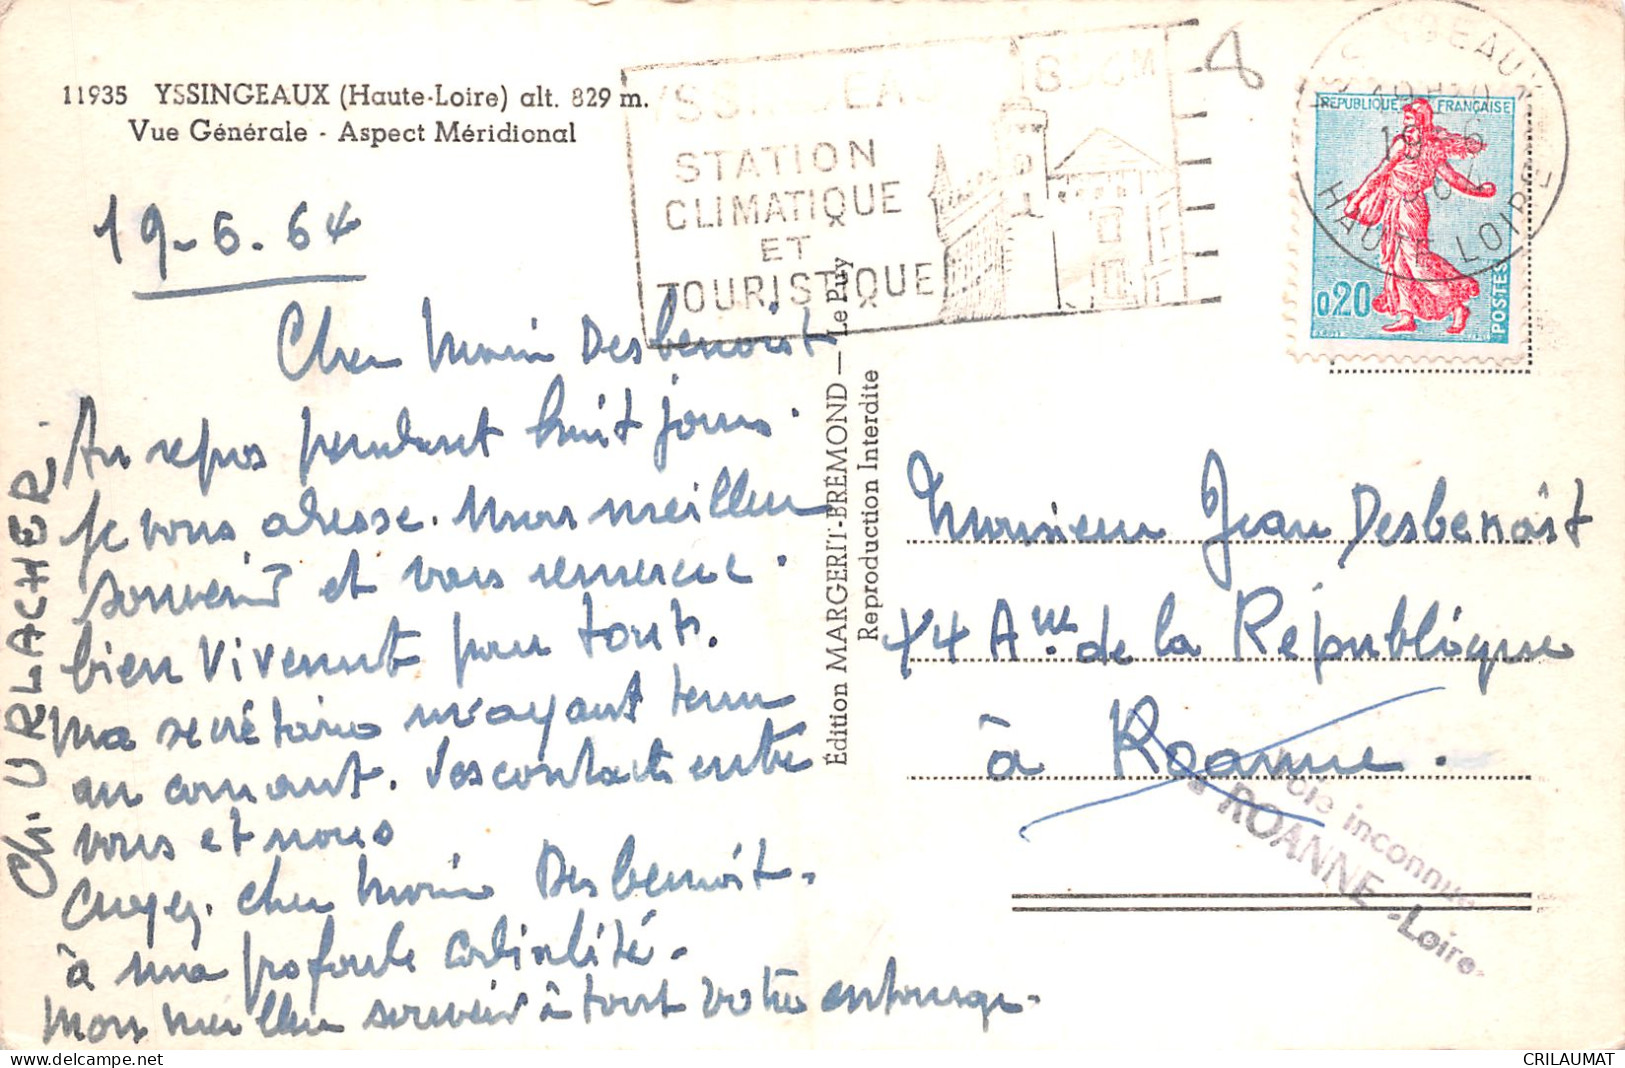 11935 YSSINGEAUX (Haute-Loire) alt. 829 m.
Vue Générale - Aspect Méridional
YSSINGEAUX 1856M
STATION
CLIMATIQUE
ET
TOURISTIQUE
YSSINGEAUX
19-6
1964
HAUTE LOIRE
REPUBLIQUE FRANÇAISE
0,20
POSTES
19-6-64
Cher Desbenoist
Au repos pendant huit jours.
Je vous adresse. Mon meilleur
souvenir et vous remercie.
bien vivement pour tout.
Ma secrétaire m'ayant tenu
au courant. Des contacts entre
vous et nous
Croyez. cher Desbenoist.
à ma profonde cordialité.
Mon meilleur souvenir à tout votre entourage.
Ch. URLACHER.
Édition MARGERIT-BRÉMOND — Le Puy
Reproduction Interdite
Monsieur Jean Desbenoist
44 Aue de la République
à Roanne.
Voie inconnue
à ROANNE -Loire-
CRILAUMAT
delcampe.net